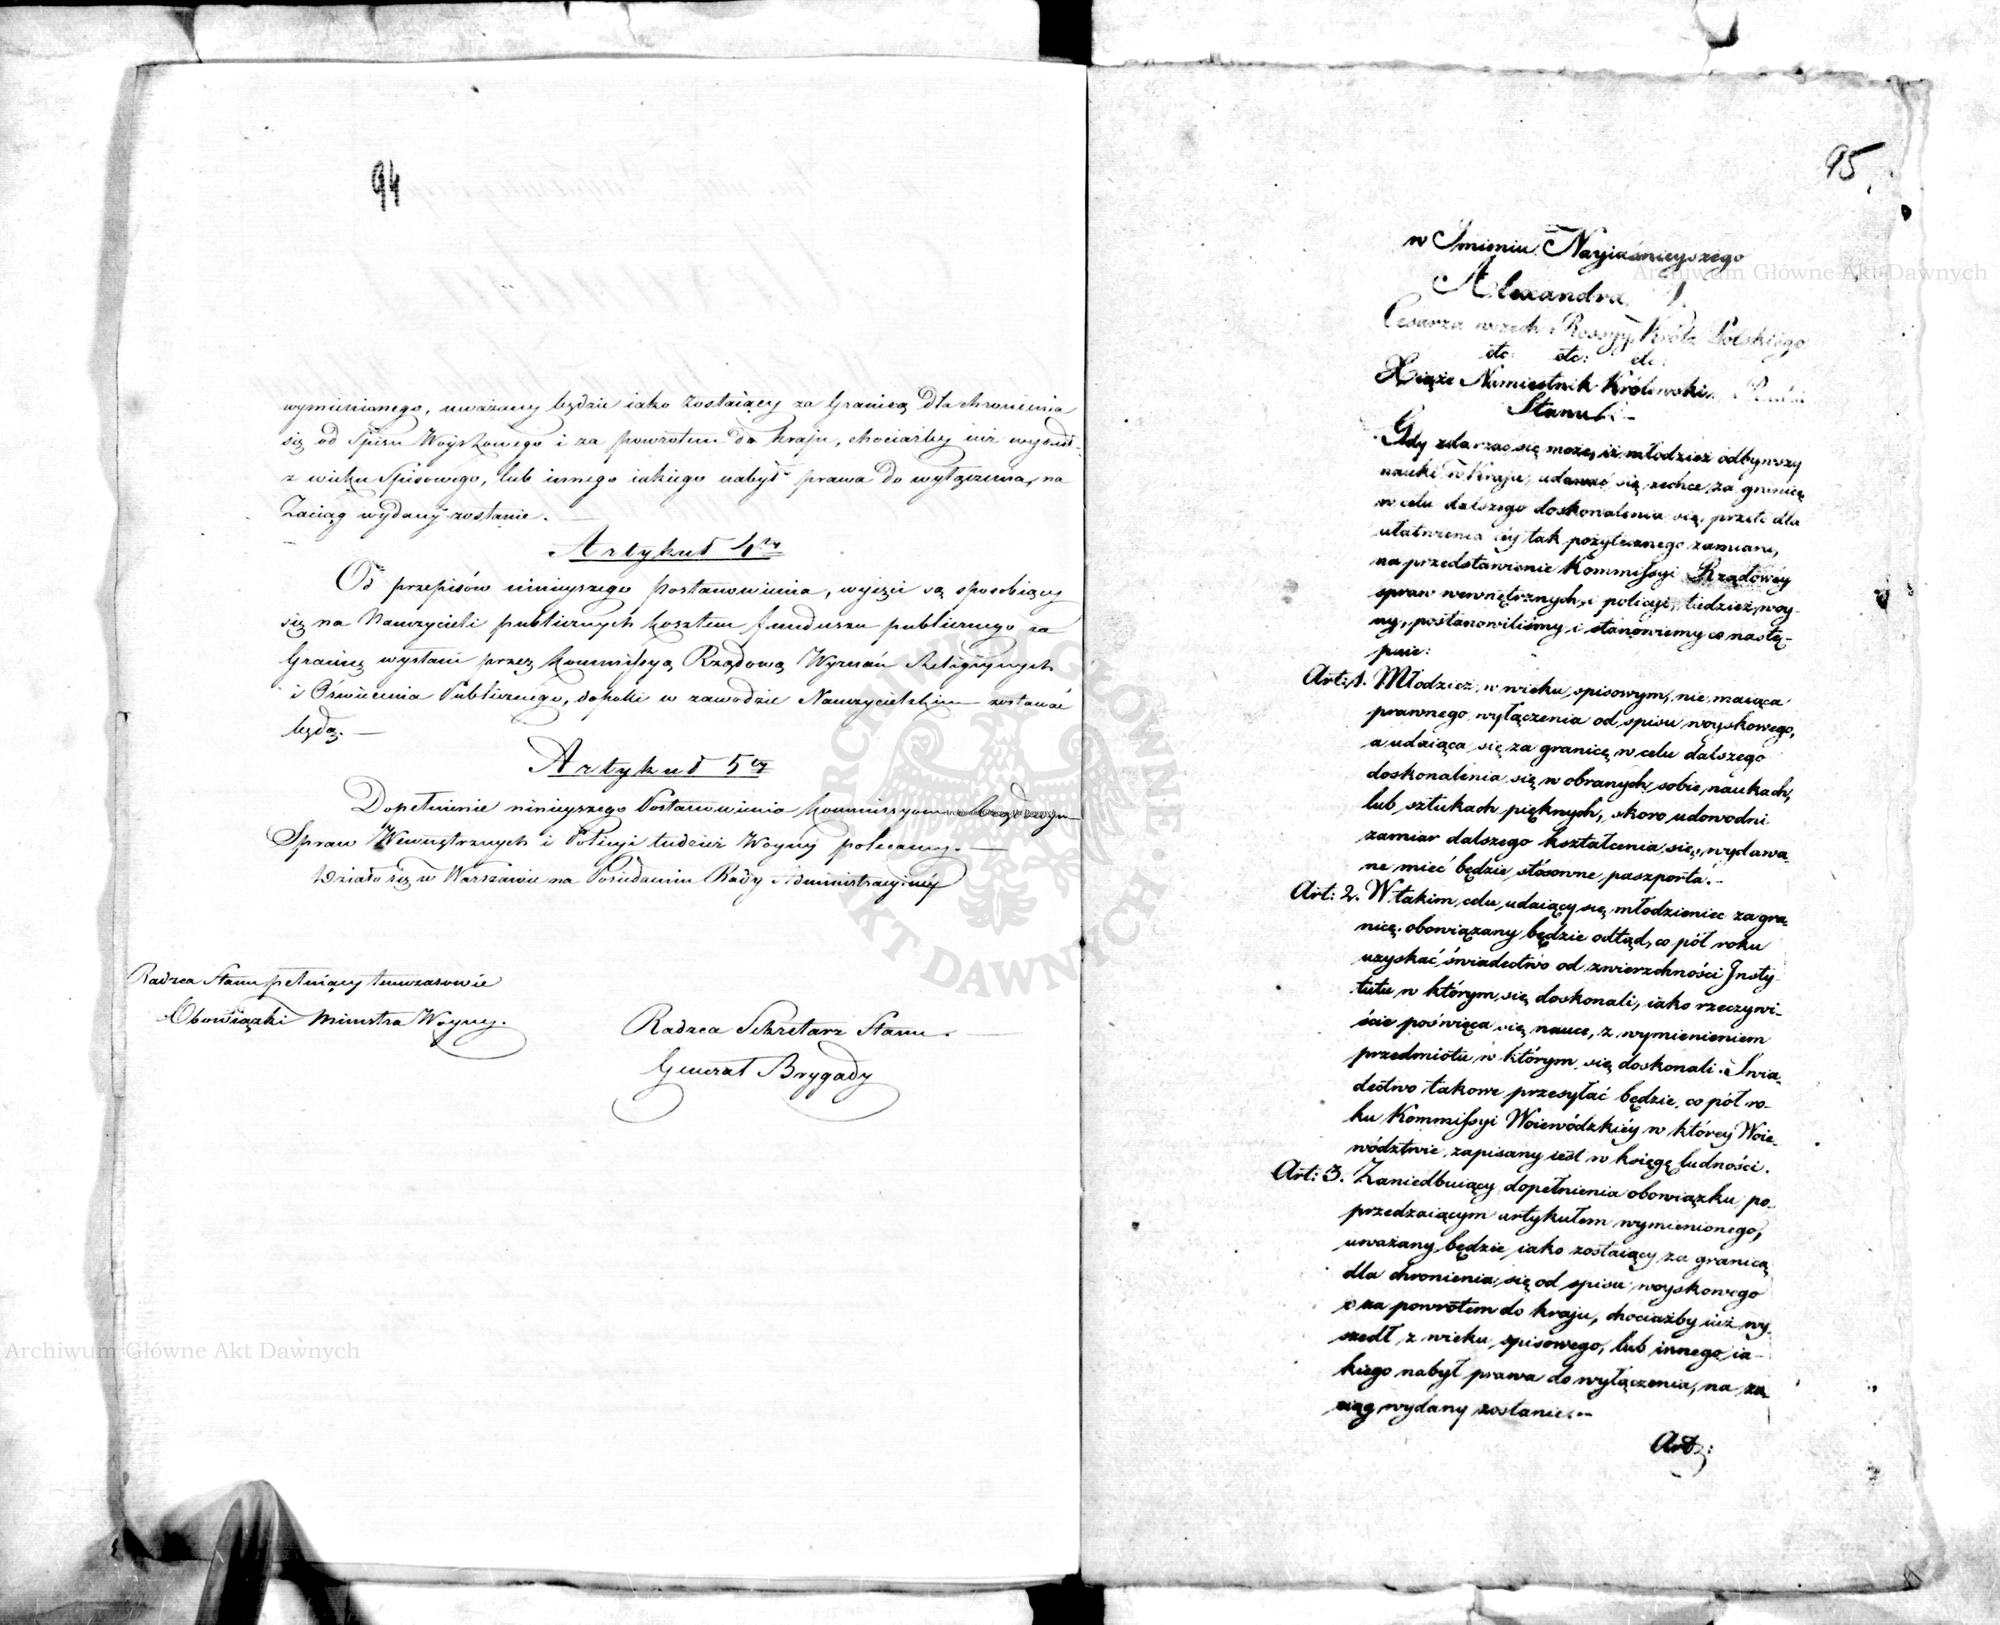 94
wymienionego, uważany będzie iako zostaiący za Granicą dla chronienia
się od Spisu Woyskowego i za powrotem do kraju, chociażby iuż wyszedł
z wieku Spisowego, lub innego iakiego nabył prawa do wyłączenia, na
Zaciąg wydany zostanie. —
Artykuł 4ty
Od przepisów ninieyszego postanowienia, wyięci są sposobiący
się na Nauczycieli publicznych kosztem funduszu publicznego za
Granicę wysłani przez Kommissyą Rządową Wyznań Religiynych
i Oświecenia Publicznego, dopóki w zawodzie Nauczycielskim zostawać
będą. —
Artykuł 5ty
Dopełnienie ninieyszego Postanowienia Kommissyom Rządowym
Spraw Wewnętrznych i Policyi tudzież Woyny polecamy. —
Działo się w Warszawie na Posiedzeniu Rady Administracyiney
Radzca Stanu pełniący tymczasowie
Obowiązki Ministra Woyny.
Radzca Sekretarz Stanu. —
Generał Brygady
95
w Imieniu Nayiaśnieyszego
Alexandra I.
Cesarza wszech Rossyy, Króla Polskiégo
etc: etc: etc:
Xiąże Namiestnik Królewski w Radzie
Stanu. —
Gdy zdarzać się może, iż młodzież odbywszy
nauki w Kraju, udawać się zechce, za granicę
w celu dalszego doskonalenia się, przeto dla
ułatwienia iéy tak pożytecznego zamiaru,
na przedstawienie Kommissyi Rządowéy
spraw wewnętrznych i policyi, tudzież woy-
ny, postanowiliśmy i stanowiemy co nastę-
puie:
Art: 1. Młodzież w wieku spisowym, nie maiąca
prawnego wyłączenia od spisu woyskowego,
a udaiąca się za granicę w celu dalszego
doskonalenia się w obranych sobie naukach,
lub sztukach pięknych, skoro udowodni
zamiar dalszego kształcenia się, wydawa-
ne mieć będzie stósowne paszporta. —
Art: 2. W takim celu udaiący się młodzieniec za gra-
nicę, obowiązany będzie odtąd, co pół roku
uzyskać świadectwo od zwierzchności Insty-
tutu w którym się doskonali, iako rzeczywi-
ście poświęca się nauce, z wymienieniem
przedmiotu w którym się doskonali. Świa-
dectwo takowe przesyłać będzie, co pół ro-
ku Kommissyi Woiewódzkiéy w któréy Woie-
wództwie zapisany iest w księgę ludności.
Art: 3. Zaniedbuiący dopełnienia obowiązku po-
przedzaiącym artykułem wymienionego,
uważany będzie iako zostaiący za granicą
dla chronienia się od spisu woyskowego
i za powrotem do kraju, chociażby iuż wy-
szedł z wieku spisowego, lub innego ia-
kiego nabył prawa do wyłączenia, na za-
ciąg wydany zostanie. —
Art:
Archiwum Główne Akt Dawnych
Archiwum Główne Akt Dawnych
Archiwum Główne Akt Dawnych
ARCHIWUM GŁÓWNE AKT DAWNYCH